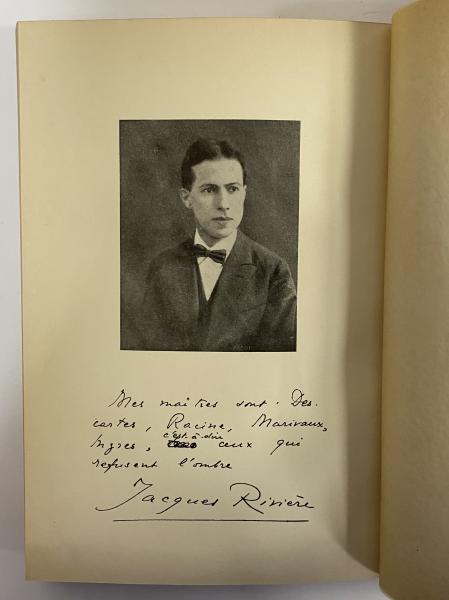 Mes maîtres sont Des-
cartes, Racine, Marivaux,
Ingres, c'est à dire ceux qui
refusent l'ombre
Jacques Rivière